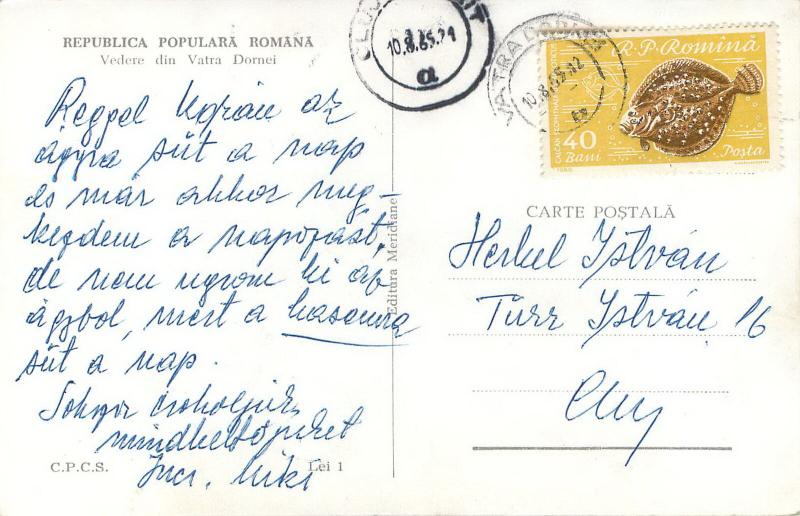 REPUBLICA POPULARĂ ROMÂNĂ
Vedere din Vatra Dornei
Reggel korán az
ágyra süt a nap
és már akkor meg-
kezdem a napozást,
de nem ugrom ki az
ágyból, mert a hasamra
süt a nap.
Sokszor csókoljuk
mindkettőjüket
Inci, Miki
C.P.C.S.
Lei 1
Editura Meridiane
CLUJ
10.8.65.21
VATRA DORNEI
10.8.65.12
R.P.Romînă
40
Bani
Posta
CARTE POȘTALĂ
Herkel István
Türr István 16
Cluj